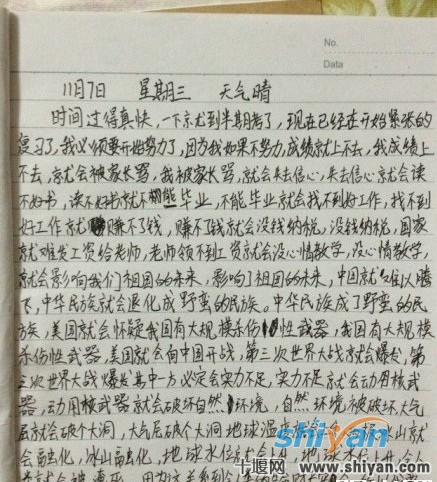 No.
Data
11月7日 星期三 天气晴
时间过得真快，一下就到半期考了，现在已经在开始紧张的
复习了，我必须要开始努力了，因为我如果不努力，成绩就上不去，我成绩上
不去，就会被家长骂，我被家长骂，就会失去信心，失去信心就会读
不好书，读不好书就不能毕业，不能毕业就会找不到好工作，找不到
好工作就赚不了钱，赚不了钱就会没钱纳税，没钱纳税，国家
就难发工资给老师，老师领不到工资就会没心情教学，没心情教学，
就会影响我们祖国的未来，影响了祖国的未来，中国就难以腾
飞，中华民族就会退化成野蛮的民族。中华民族成了野蛮的民
族，美国就会怀疑我国有大规模杀伤性武器，我国有大规模
杀伤性武器，美国就会向中国开战，第三次世界大战就会爆发，第
三次世界大战爆发其中一方必定会实力不足，实力不足就会动用核武
器，动用核武器就会破坏自然环境，自然环境被破坏，大气
层就会破个大洞，大气层破个大洞地球温 冰山就
会融化，冰山融化，地球水位就会
shiyan
.com
十堰网 www.shiyan.com